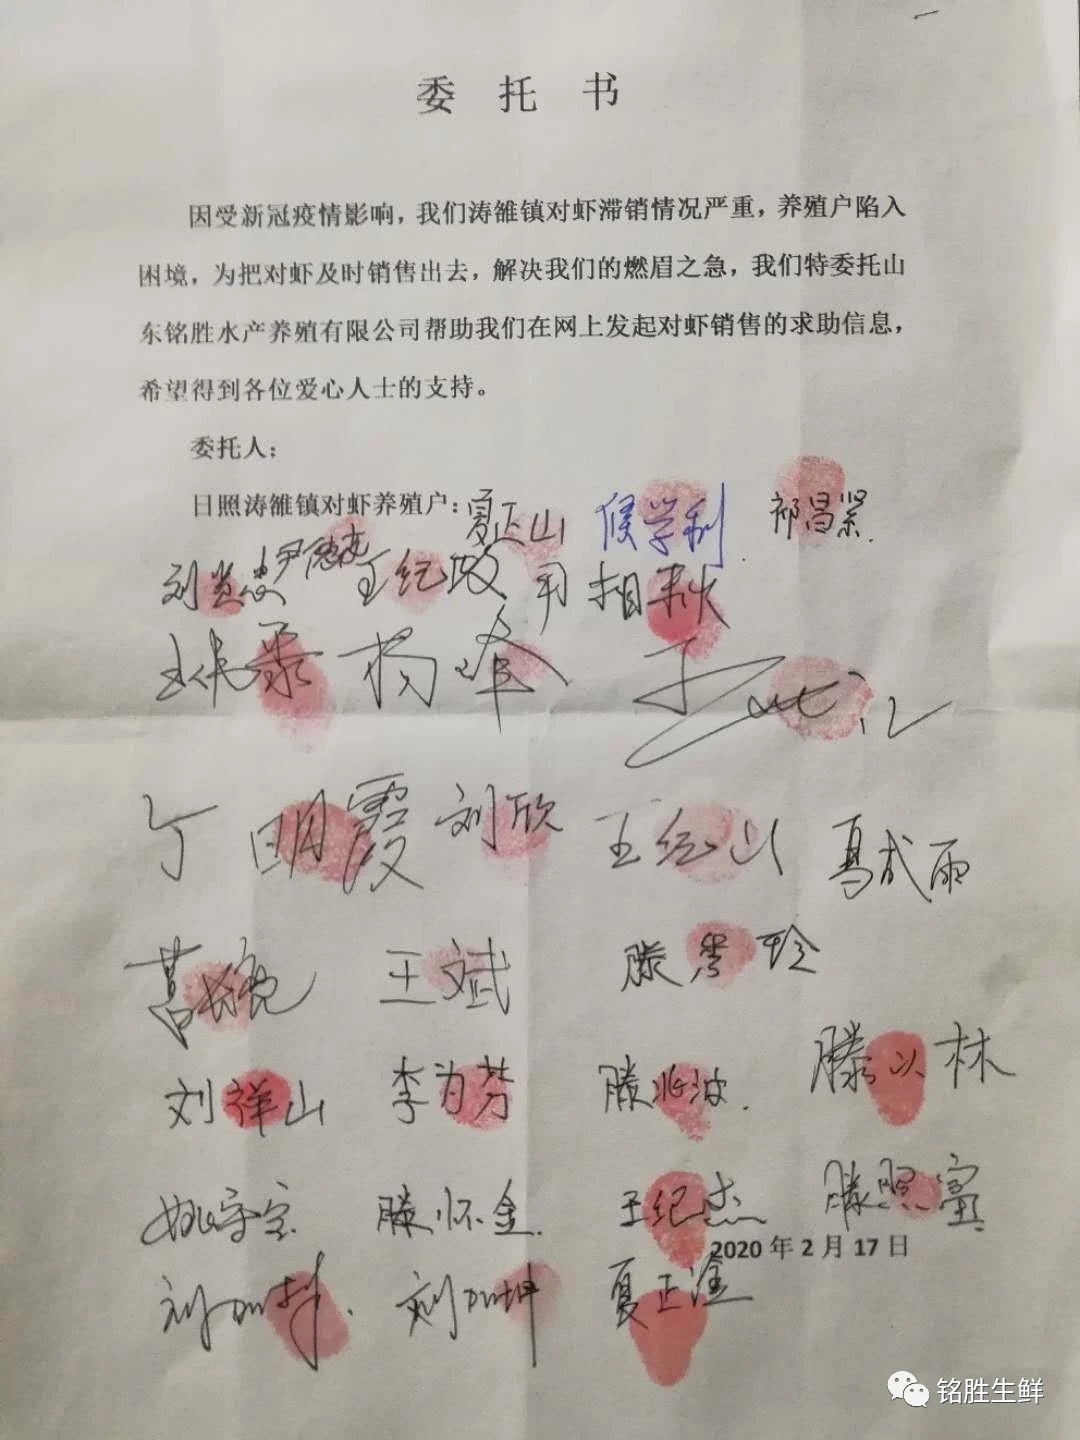 委托书
因受新冠疫情影响，我们涛雒镇对虾滞销情况严重，养殖户陷入
困境，为把对虾及时销售出去，解决我们的燃眉之急，我们特委托山
东铭胜水产养殖有限公司帮助我们在网上发起对虾销售的求助信息，
希望得到各位爱心人士的支持。
委托人；
日照涛雒镇对虾养殖户：夏正山 侯学利
王纪政
杨峰
丁明霞 刘欣 王纪山
王斌
刘祥山 李为芬 滕以林
姚守宝 滕怀金 王纪杰 滕照富
2020年2月17日
刘加坤 夏正淦
铭胜生鲜